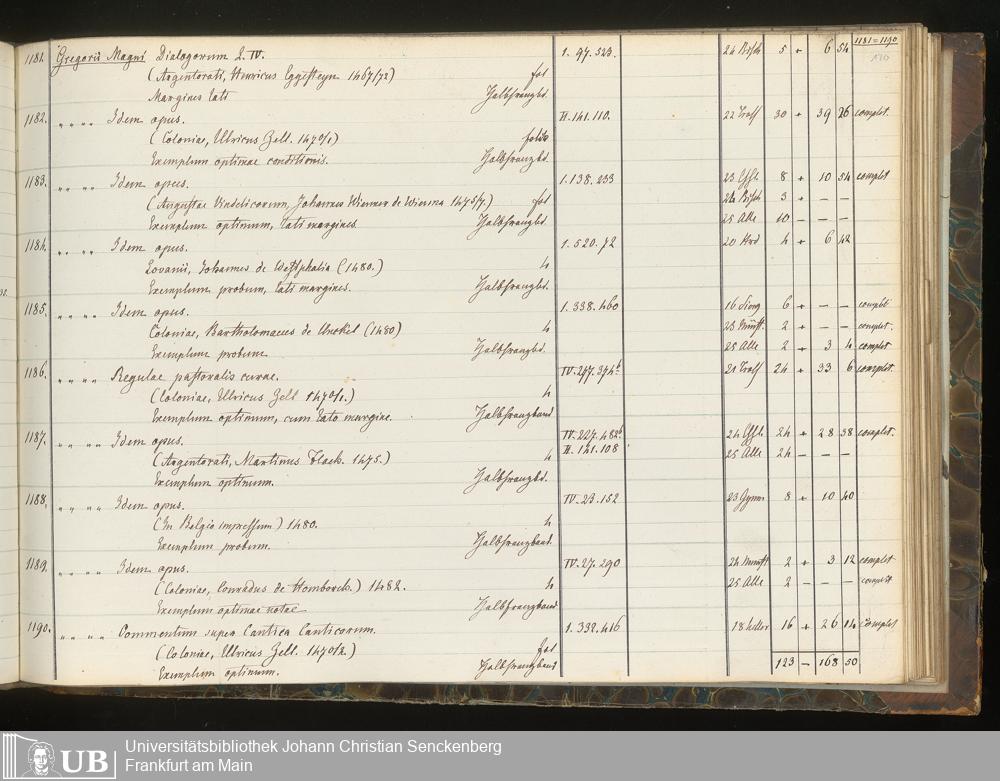 1181 = 1190
1181. Gregorii Magni Dialogorum L. IV. 1. 97. 523. 24 Bisch 5 + 6 54
(Argentorati, Henricus Eggesteyn 1467/72) fol
Margines lati Halbfranzbd.
1182. " " " " Idem opus. II. 141. 110. 22 Tross 30 + 39 26 complet.
(Coloniae, Ulricus Zell. 1470/1) folio
Exemplum optimae conditionis. Halbfranzbd.
1183. " " " " Idem opus. 1. 138. 233 23 8 + 10 54 complet
(Augustae Vindelicorum, Johannes Wiener de Wienna 1475/7.) fol 24 Bisch 3 + — —
Exemplum optimum, lati margines. Halbfranzbd. 25 Alle 10 — — —
1184. " " " " Idem opus. 1. 520. 72 20 4 + 6 42
Lovanii, Johannes de Westphalia (1480.) 4
Exemplum probum, lati margines. Halbfranzbd.
1185. " " " " Idem opus. 1. 338. 460 16 6 + — — complet
Coloniae, Bartholomaeus de Unckel (1480) 4 23 Münst. 2 + — — complet.
Exemplum probum. Halbfranzbd. 25 Alle 2 + 3 4 complet
1186. " " " " Regulae pastoralis curae. IV. 247. 394b. 21 Tross 24 + 33 6 complet.
(Coloniae, Ulricus Zell 1470/1.) 4
Exemplum optimum, cum lato margine. Halbfranzband
1187. " " " " Idem opus. IV. 227. 482b 24 24 + 28 38 complet.
II. 141. 108 25 Alle 24 — — —
(Argentorati, Martinus Flach. 1475.) 4
Exemplum optimum. Halbfranzbd.
1188. " " " " Idem opus. IV. 23. 152 23 Gymn 8 + 10 40
(In Belgio impressum) 1480. 4
Exemplum probum. Halbfranzband.
1189. " " " " Idem opus. IV. 27. 290 24 Münst 2 + 3 12 complet
(Coloniae, Conradus de Homborch.) 1482. 4 25 Alle 2 — — — complet
Exemplum optimae notae Halbfranzband
1190. " " " " Commentum super Cantica Canticorum. 1. 332. 416 18 Heller 16 + 26 14 Complet
(Coloniae, Ulricus Zell. 1470/2.) fol
Exemplum optimum. Halbfranzband 123 — 168 50
UB Universitätsbibliothek Johann Christian Senckenberg
Frankfurt am Main